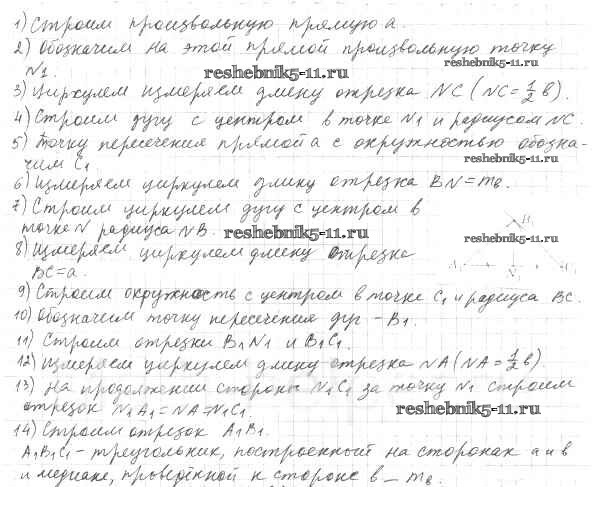 1) Строим произвольную прямую а.
2) Обозначим на этой прямой произвольную точку
N1.
reshebnik5-11.ru
reshebnik5-11.ru
3) Циркулем измеряем длину отрезка NC (NC = 1/2 в).
4) Строим дугу с центром в точке N1 и радиусом NC.
5) Точку пересечения прямой а с окружностью обозна-
чим C1
reshebnik5-11.ru
6) Измеряем циркулем длину отрезка BN = mв.
7) Строим циркулем дугу с центром в
точке N радиуса NB.
reshebnik5-11.ru
reshebnik5-11.ru
B1
8) Измеряем циркулем длину отрезка
BC = a.
A1 N1
9) Строим окружность с центром в точке C1 и радиуса BC.
10) Обозначим точку пересечения дуг – B1.
11) Строим отрезки B1N1 и B1C1.
12) Измеряем циркулем длину отрезка NA (NA = 1/2 в).
13) На продолжении стороны N1C1 за точку N1 строим
отрезок N1A1 = NA = N1C1.
reshebnik5-11.ru
14) Строим отрезок A1B1.
A1B1C1 – треугольник, построенный на сторонах а и в
и медиане, проведённой к стороне в – mв.